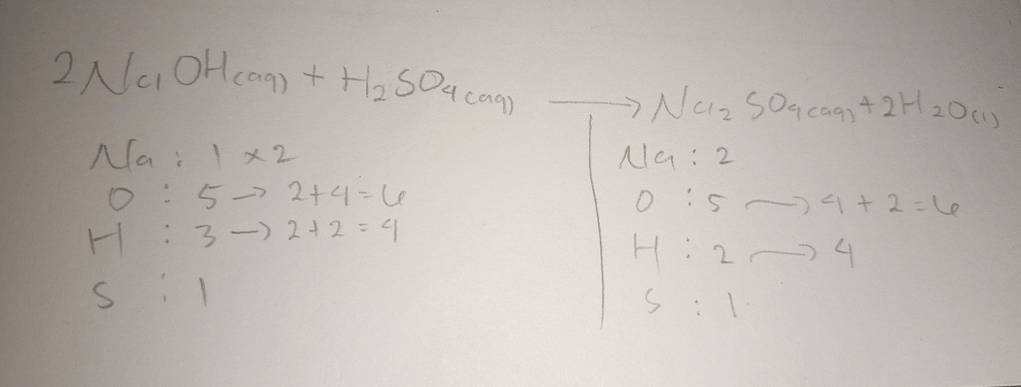 2NaOH(aq) + H₂SO₄(aq) → Na₂SO₄(aq) + 2H₂O(l)
Na : 1 x2
O : 5 → 2+4=6
H : 3 → 2+2=4
S : 1
Na : 2
O : 5 → 4+2=6
H : 2 → 4
S : 1